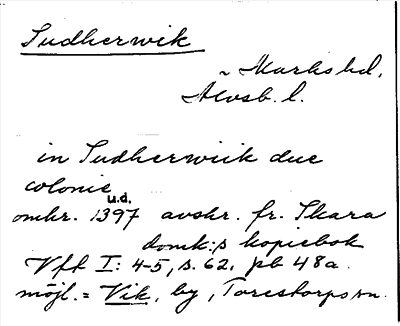 Sudherwik
~ Marks hd,
Älvsb. l.
in Sudherwiik due
colonie
u.d.
omkr. 1397 avskr. fr. Skara
domk:s kopiebok
Vft I: 4-5, s. 62, pb 48a.
möjl. = Vik, by, Torestorps sn.